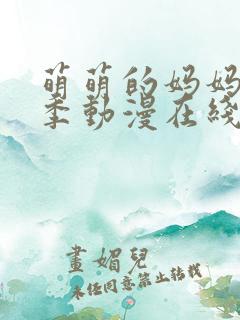 萌萌的妈妈
季動漫在綫
畫媚兒
未经同意禁止转载